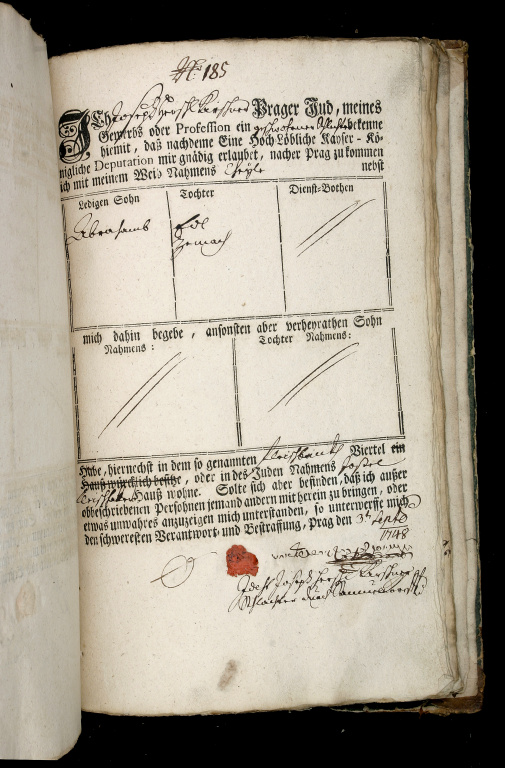 No 185
Ich Joseph Hersch Kirschner Prager Jud, meines
Gewerbs oder Profession ein geschworner bekenne
hiemit, daß nachdeme Eine Hoch Löbliche Kayser - Kö-
nigliche Deputation mir gnädig erlaubet, nacher Prag zu kommen
ich mit meinem Weib Nahmens nebst
Ledigen Sohn Tochter Dienst-Bothen
Abrahamb
mich dahin begebe, ansonsten aber verheyrathen Sohn
Nahmens: Tochter Nahmens:
Habe, hiernechst in dem so genannten Viertel ein
Hauß würcklich besitze, oder in des Juden Nahmens
Hauß wohne. Solte sich aber befinden, daß ich außer
obbeschriebenen Persohnen jemand andern mit herein zu bringen, oder
etwas unwahres anzuzeigen mich unterstanden, so unterwerffe mich
den schweresten Verantwort- und Bestraffung, Prag den 3t Septb
1748
Joseph Hersch